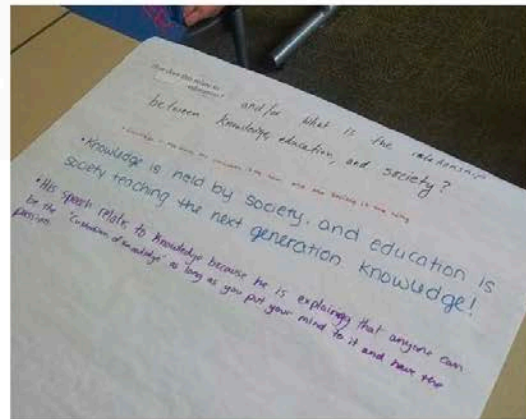 How does this relate to
education? and/or what is the relationship
between knowledge, education, and society?
• Knowledge is the
• Knowledge is held by society, and education is
society teaching the next generation knowledge!
• His speech relats to knowledge because he is explaining that anyone can
be the "Custodian of knowledge" as long as you put your mind to it and have the
passion.